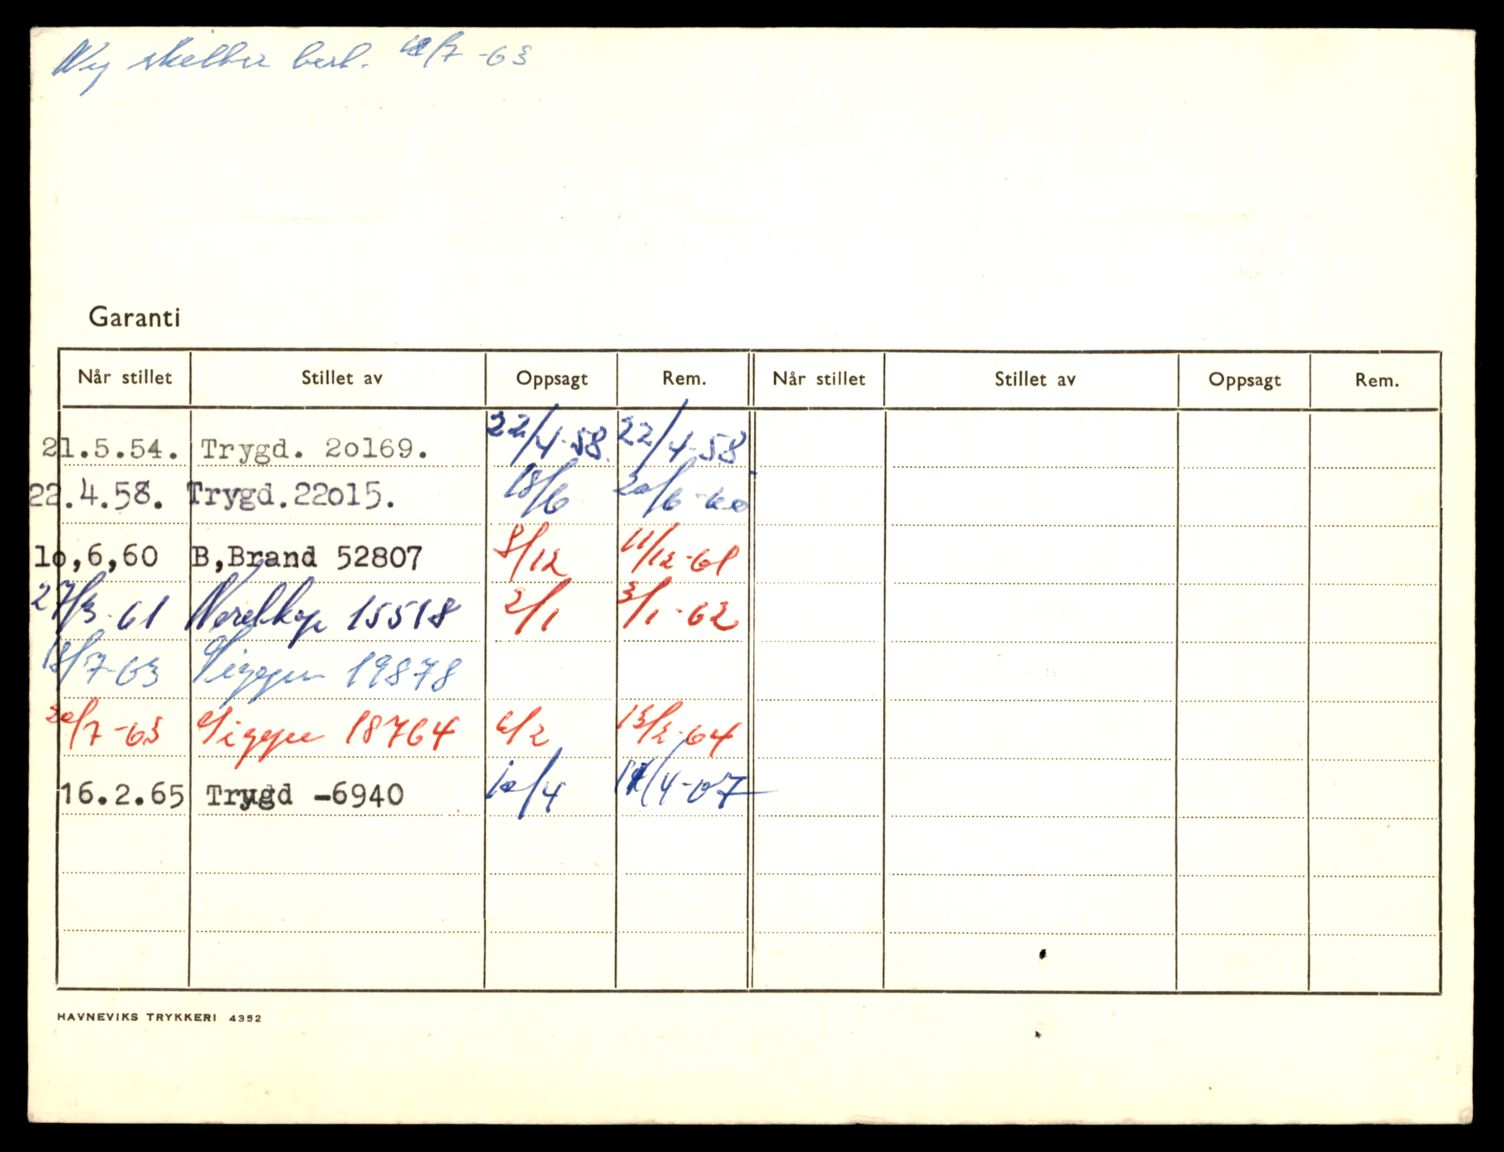 Ny skilter best. 18/7-63
Garanti
Når stillet Stillet av Oppsagt Rem. Når stillet Stillet av Oppsagt Rem.
21.5.54. Trygd. 2o169. 22/4-58. 22/4-58.
22.4.58. Trygd.22o15. 18/6 20/6-60
1o,6,60 B,Brand 52807 8/12 11/12-61
27/3-61 Nordkap 15518 2/1 3/1-62
18/7-63 Viggen 19878
20/7-63 Viggen 18764 6/2 13/2-64
16.2.65 Trygd -6940 10/4 /4-67
HAVNEVIKS TRYKKERI 4352